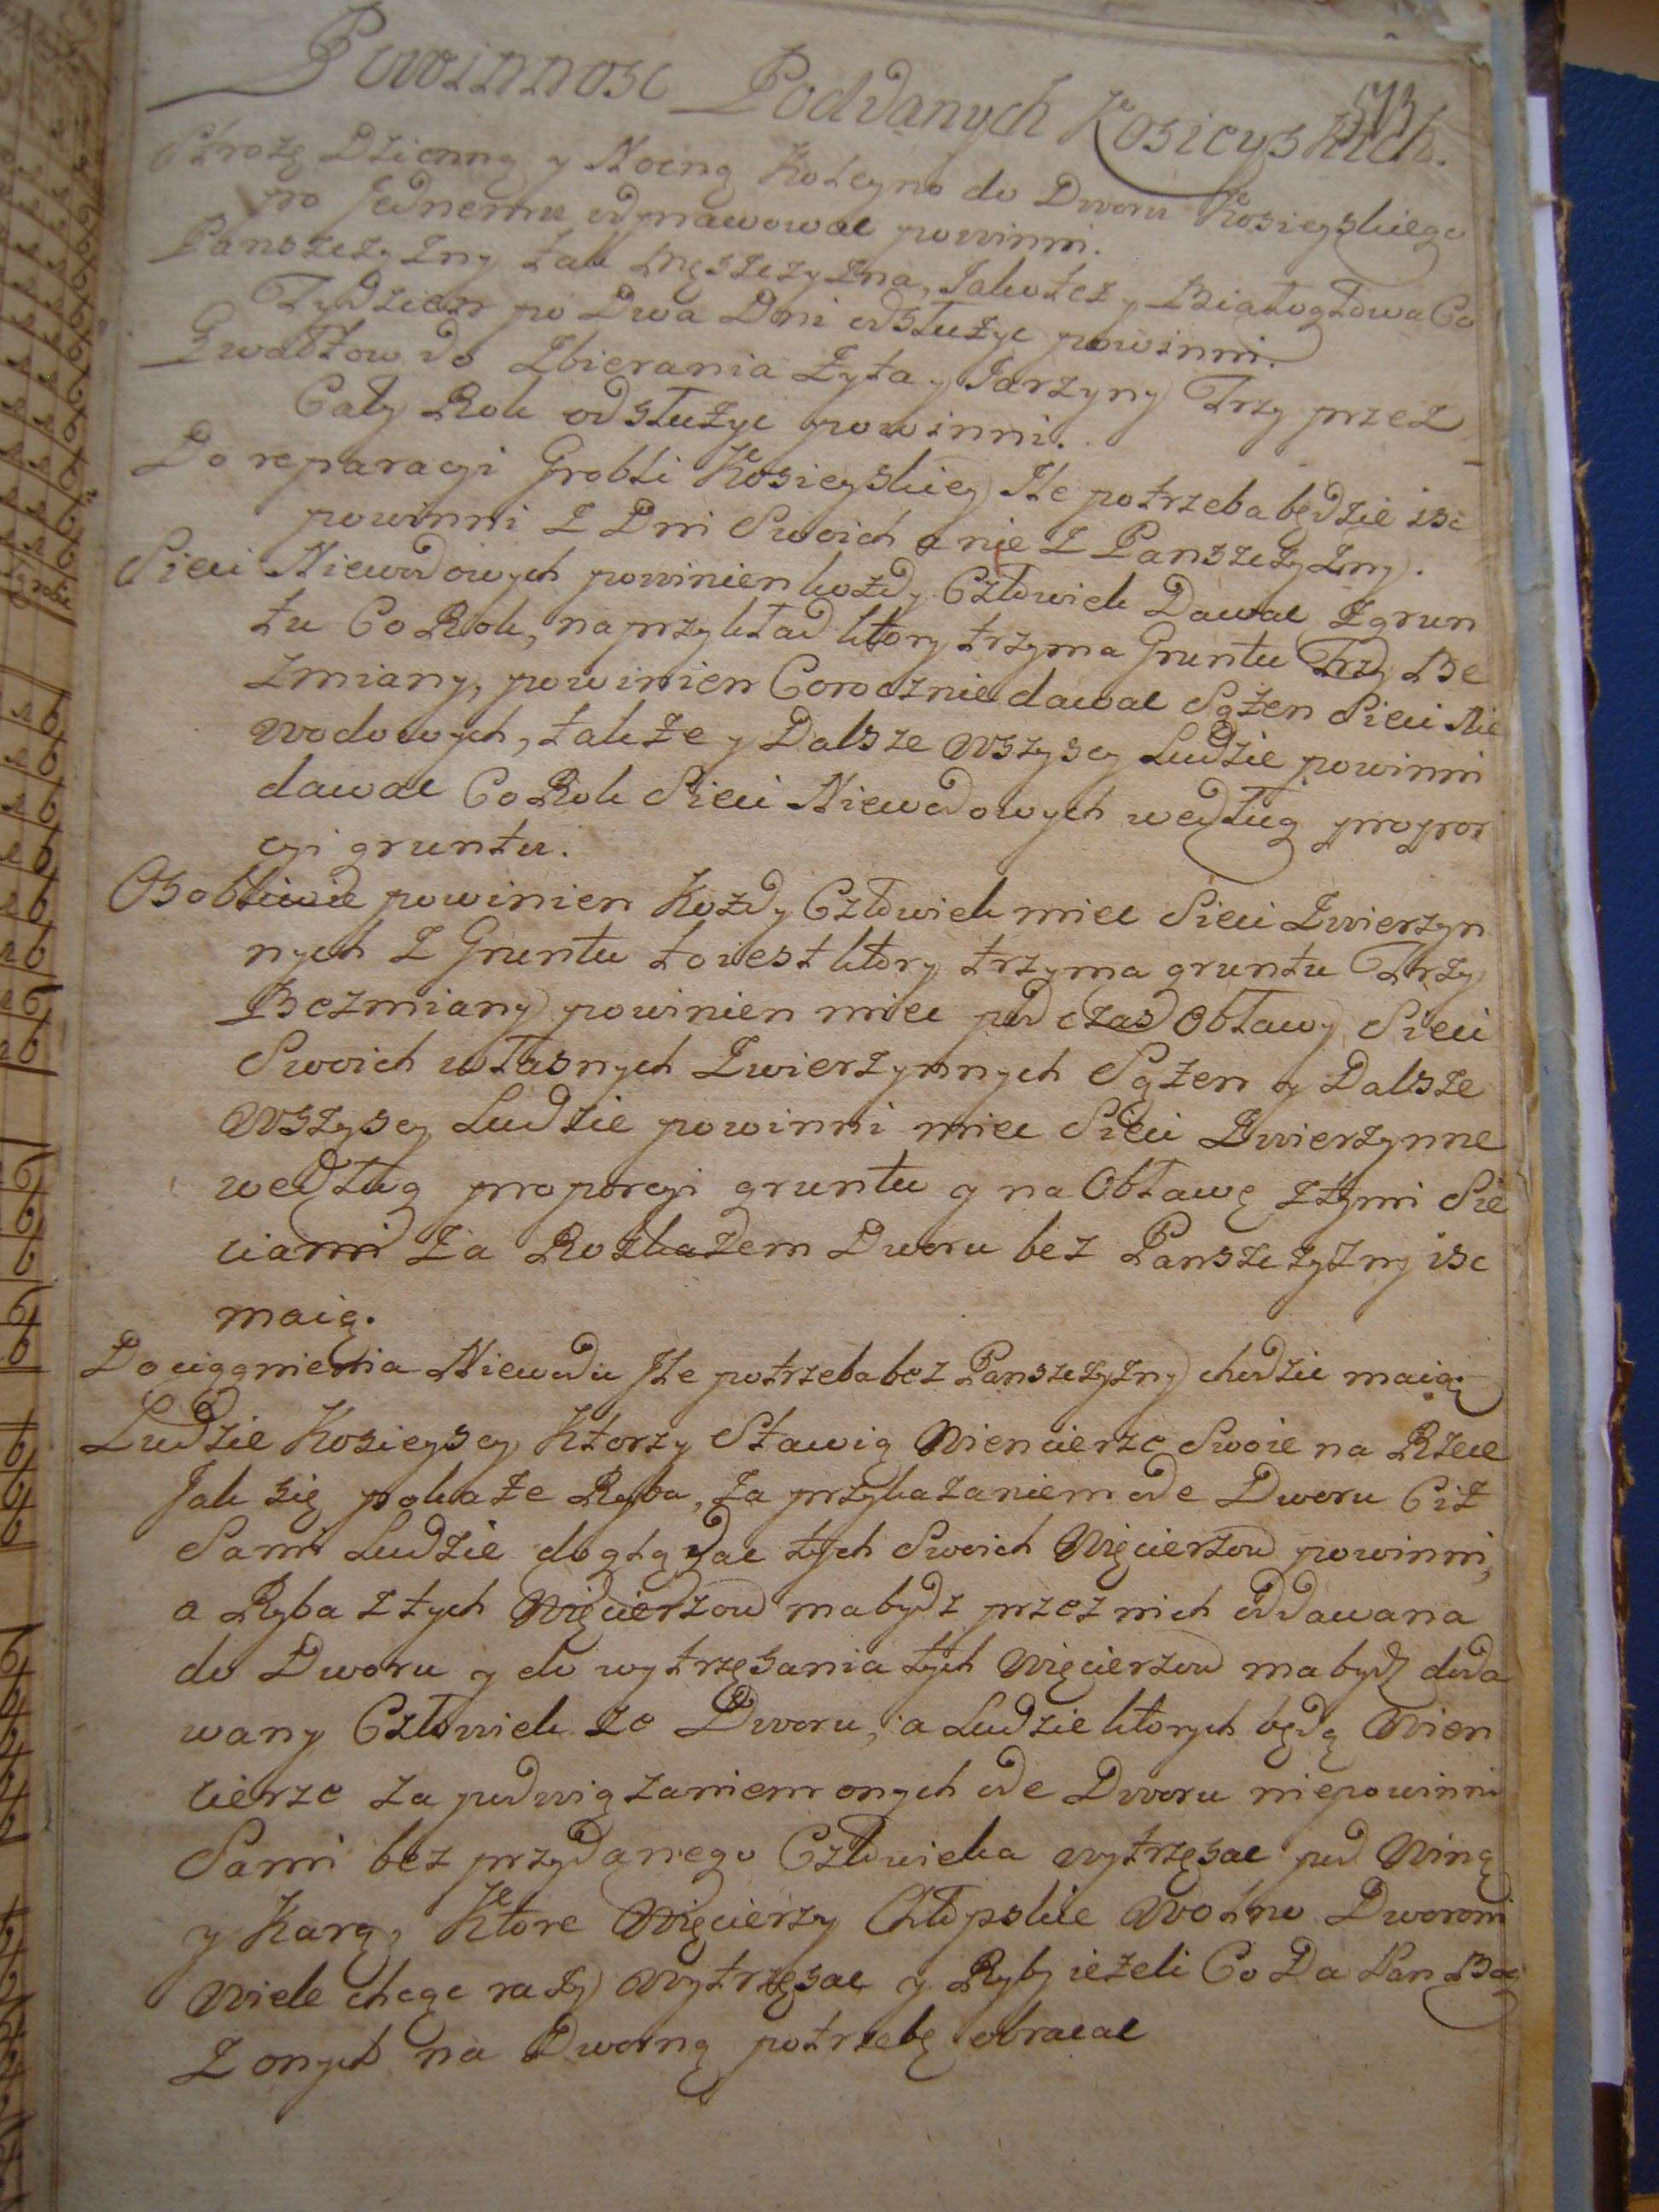 Powinnosc Poddanych Kosicyskich.
513
Strożę Dzienną y Nocną Koleyno do Dworu Kosicyskiego
po Jednemu odprawowac powinni.
Panszczyzny tak Męszczyzna, Jako też y Białogłowa Co
Tydzien po Dwa Dni odsłużyc powinni.
Gwałtow do Zbierania Żyta y Jarzyny Trzy przez
Cały Rok odsłużyc powinni.
Do reparacyi Grobli Kosicyskiey Ile potrzeba będzie isc
powinni Z Dni Swoich a nie Z Panszczyzny.
Sieci Niewodowych powinien kożdy Człowiek Dawac Z grun
tu Co Rok, na przykład ktory trzyma Gruntu Trzy Be
zmiany, powinien Corocznie dawac Sążen Sieci Nie
wodowych, także y Dalsze wszyscy Ludzie powinni
dawac Co Rok Sieci Niewodowych według propor
cyi gruntu.
Osobliwie powinien Kożdy Człowiek miec Sieci Zwierzyn
nych Z Gruntu to iest ktory trzyma gruntu Trzy
Bezmiany powinien miec pod czas Obławy Sieci
Swoich własnych Zwierzynnych Sążen y Dalsze
wszyscy Ludzie powinni miec Sieci Zwierzynne
według proporcyi gruntu y na Obławę z tymi Sie
ciami Za Rozkazem Dworu bez Panszczyzny isc
maią.
Do ciągnienia Niewodu Ile potrzeba bez Panszczyzny chodzic maią.
Ludzie Kosicyscy Ktorzy Stawią Wiencierze Swoie na Rzece
Jak się pokaże Ryba, za przykazaniem ode Dworu Ciż
Sami Ludzie doglądac tych Swoich Więcierzow powinni,
a Ryba z tych Więcierzow ma bydz przez nich oddawana
do Dworu y do wytrzęsania tych Więcierzow ma bydz doda
wany Człowiek ze Dworu, a Ludzie ktorych będą Wien
cierze za podwiązaniem onych ode Dworu niepowinni
Sami bez przydanego Człowieka wytrzęsac pod Winą
y Karą, Ktore Więcierzy Chłopskie Wolno Dworowi
Wiele chcąc razy Wytrzęsac y Ryby ieżeli Co Da Pan Bog
Z onych na Dworną potrzebę obracac